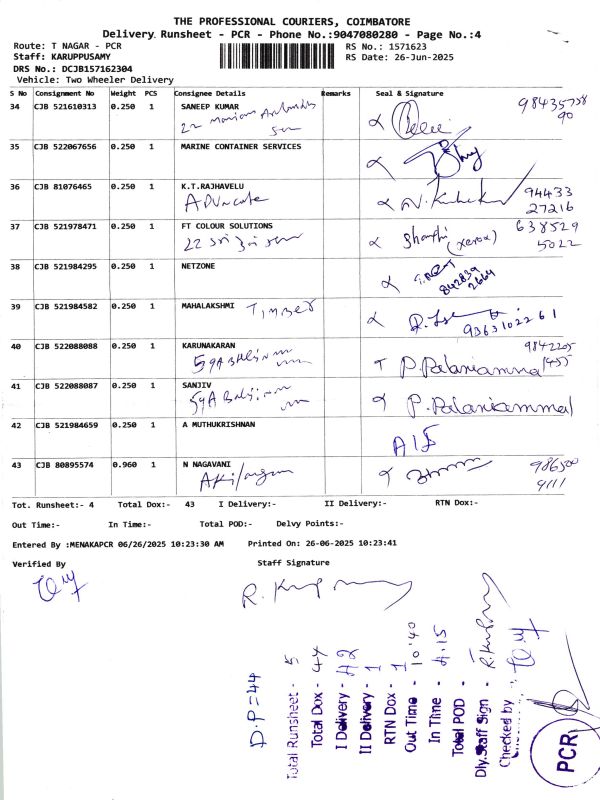 THE PROFESSIONAL COURIERS, COIMBATORE
Delivery Runsheet - PCR - Phone No.:9047080280 - Page No.:4
Route: T NAGAR - PCR RS No.: 1571623
Staff: KARUPPUSAMY RS Date: 26-Jun-2025
DRS No.: DCJB157162304
Vehicle: Two Wheeler Delivery
S No Consignment No Weight PCS Consignee Details Remarks Seal & Signature
34 CJB 521610313 0.250 1 SANEEP KUMAR
35 CJB 522067656 0.250 1 MARINE CONTAINER SERVICES
36 CJB 81076465 0.250 1 K.T.RAJHAVELU 94433
Advocate 27216
37 CJB 521978471 0.250 1 FT COLOUR SOLUTIONS 638529
Shanthi (xerox) 5022
38 CJB 521984295 0.250 1 NETZONE
842839
2664
39 CJB 521984582 0.250 1 MAHALAKSHMI Timber
9363102261
40 CJB 522088088 0.250 1 KARUNAKARAN 9842205
P. Palaniammal 1455
41 CJB 522088087 0.250 1 SANJIV
P. Palaniammal
42 CJB 521984659 0.250 1 A MUTHUKRISHNAN
43 CJB 80895574 0.960 1 N NAGAVANI 986500
9111
Tot. Runsheet:- 4 Total Dox:- 43 I Delivery:- II Delivery:- RTN Dox:-
Out Time:- In Time:- Total POD:- Delvy Points:-
Entered By :MENAKAPCR 06/26/2025 10:23:30 AM Printed On: 26-06-2025 10:23:41
Verified By Staff Signature
D.P=44
Total Runsheet - 5
Total Dox - 44
I Delivery - 42
II Delivery - 1
RTN Dox - 1
Out Time - 10.40
In Time - 4.15
Total POD -
Dly.Staff Sign -
Checked by
PCR